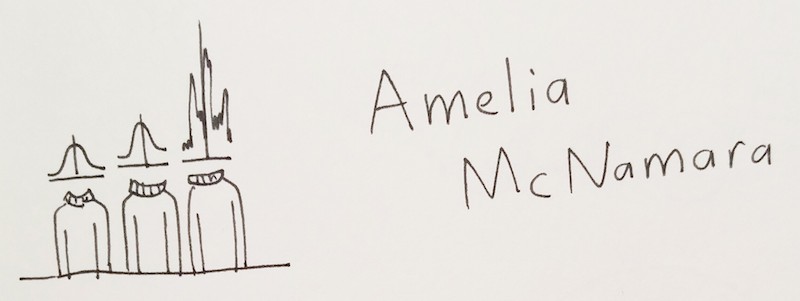 Amelia
McNamara